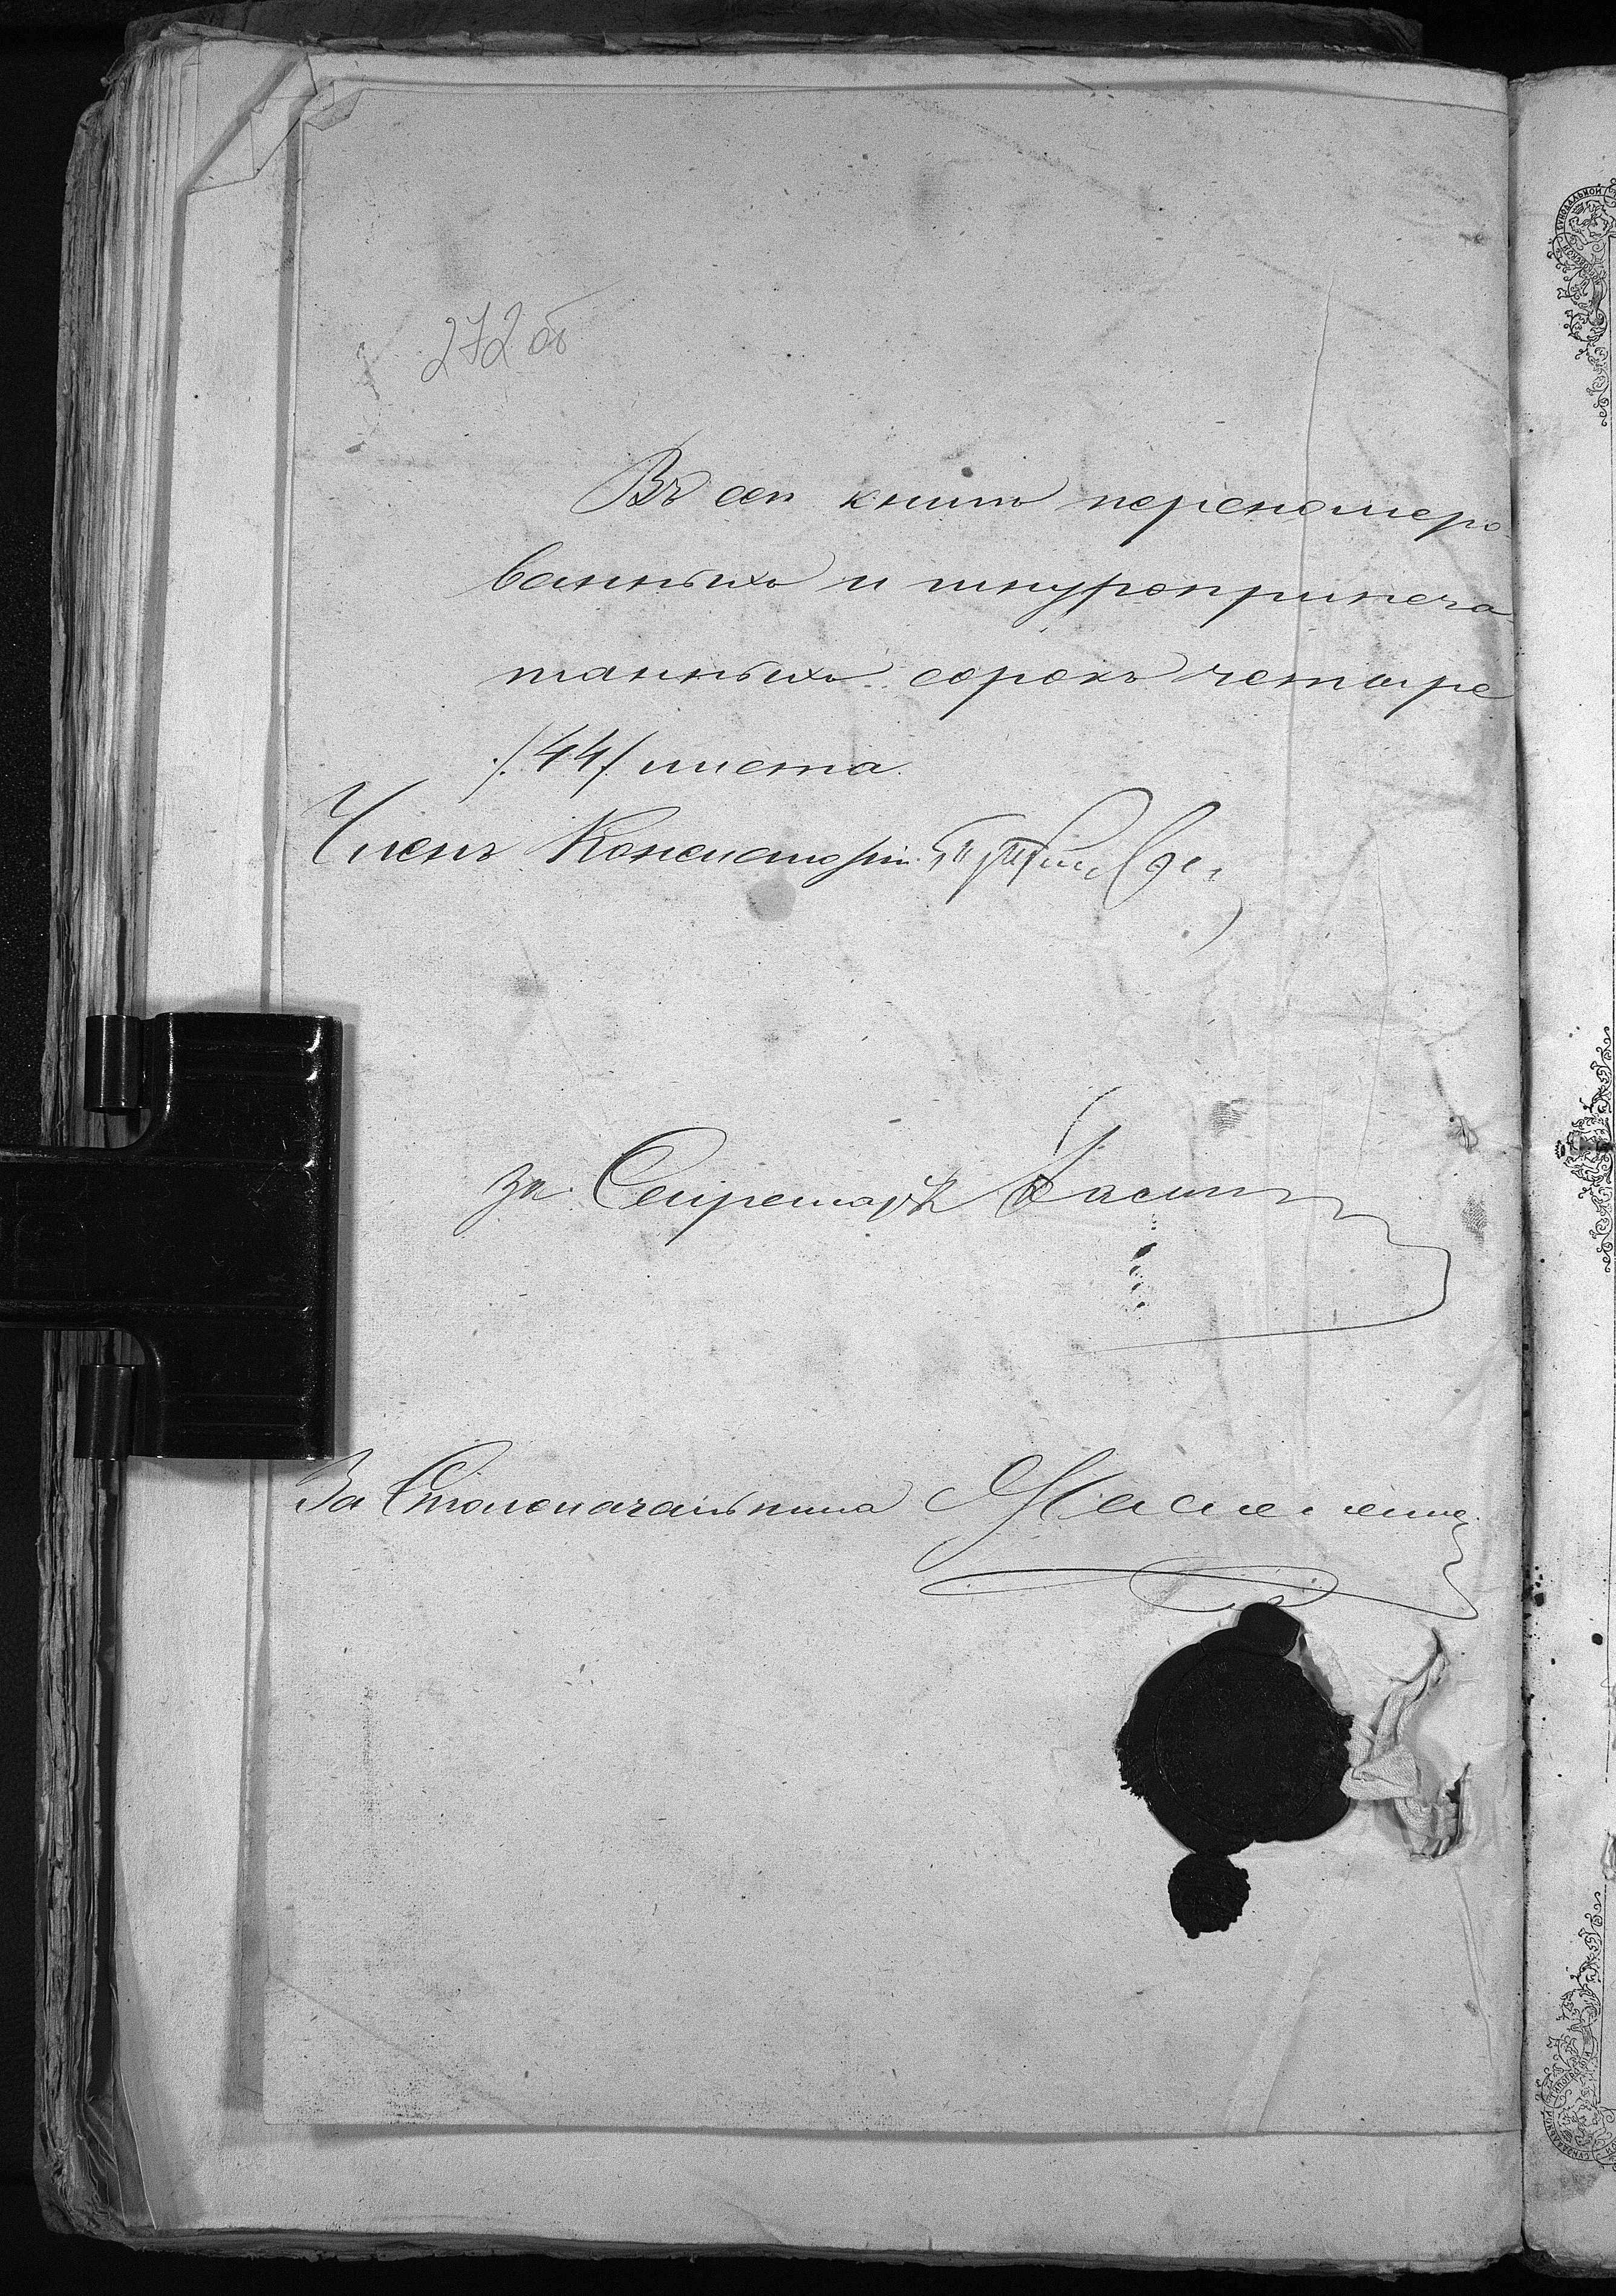 272 об
Въ сей книгѣ перенумеро
ванныхъ и шнуроприпеча
танныхъ сорокъ четыре
/44/ листа.
Членъ Консисторіи
За Секретаря
За Столоначальника